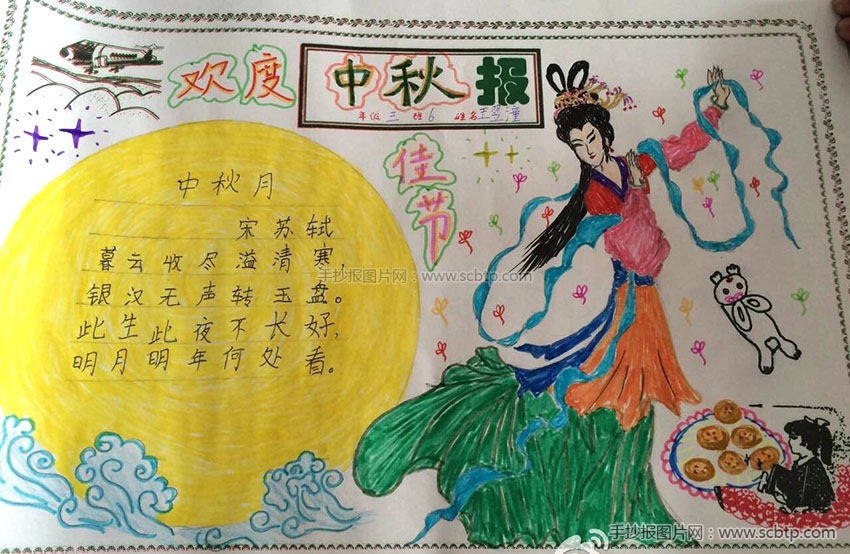 欢度
中秋报
年级三 班6 姓名王莹潼
佳节
中秋月
宋苏轼
暮云收尽溢清寒，
银汉无声转玉盘。
此生此夜不长好，
明月明年何处看。
手抄报图片网：www.scbtp.com
手抄报图片网：www.scbtp.com